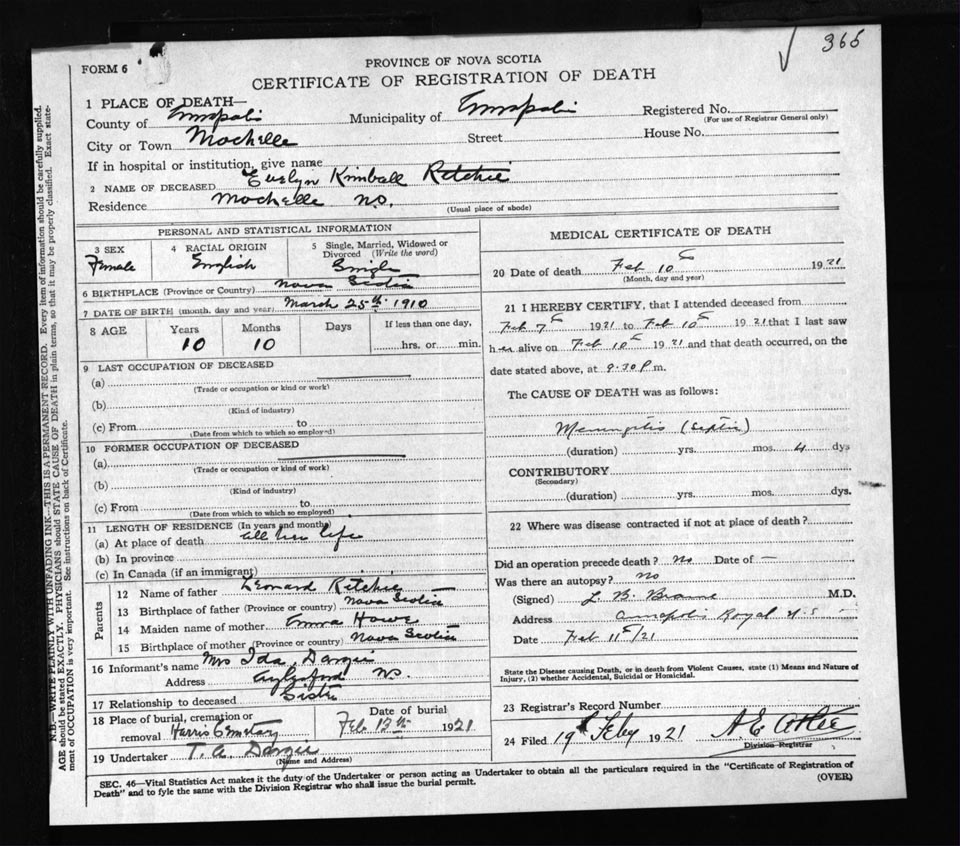 365
FORM 6
PROVINCE OF NOVA SCOTIA
CERTIFICATE OF REGISTRATION OF DEATH
N.B.—WRITE PLAINLY WITH UNFADING INK—THIS IS A PERMANENT RECORD. Every item of information should be carefully supplied.
AGE should be stated EXACTLY. PHYSICIANS should STATE CAUSE OF DEATH in plain terms, so that it may be properly classified. Exact state-
ment of OCCUPATION is very important. See instructions on back of Certificate.
1 PLACE OF DEATH—
County of Annapolis Municipality of Annapolis Registered No.
(For use of Registrar General only)
City or Town Mochelle Street House No.
If in hospital or institution, give name
2 NAME OF DECEASED Evelyn Kimball Ritchie
Residence Mochelle N.S.
(Usual place of abode)
PERSONAL AND STATISTICAL INFORMATION
3 SEX Female
4 RACIAL ORIGIN English
5 Single, Married, Widowed or Divorced (Write the word) Single
6 BIRTHPLACE (Province or Country) Nova Scotia
7 DATE OF BIRTH (month, day and year) March 25th 1910
8 AGE Years 10 Months 10 Days If less than one day, hrs. or min.
9 LAST OCCUPATION OF DECEASED
(a)
(Trade or occupation or kind or work)
(b)
(Kind of industry)
(c) From to
(Date from which to which so employed)
10 FORMER OCCUPATION OF DECEASED
(a)
(Trade or occupation or kind of work)
(b)
(Kind of industry)
(c) From to
(Date from which to which so employed)
11 LENGTH OF RESIDENCE (In years and months)
(a) At place of death all her life
(b) In province
(c) In Canada (if an immigrant)
Parents
12 Name of father Leonard Ritchie
13 Birthplace of father (Province or country) Nova Scotia
14 Maiden name of mother Emma Howe
15 Birthplace of mother (Province or country) Nova Scotia
16 Informant's name Mrs Ida Dargie
Address Aylesford N.S.
17 Relationship to deceased Sister
18 Place of burial, cremation or removal Harris Cemetary
Date of burial Feb 13th 1921
19 Undertaker T. A. Dargie
(Name and Address)
MEDICAL CERTIFICATE OF DEATH
20 Date of death Feb 10th 1921
(Month, day and year)
21 I HEREBY CERTIFY, that I attended deceased from
Feb 7th 1921 to Feb 10th 1921 that I last saw
her alive on Feb 10th 1921 and that death occurred, on the
date stated above, at 9.30 P.m.
The CAUSE OF DEATH was as follows:
Meningitis (Septic)
(duration) yrs. mos. 4 dys
CONTRIBUTORY
(Secondary)
(duration) yrs. mos. dys.
22 Where was disease contracted if not at place of death?
Did an operation precede death? No Date of —
Was there an autopsy? No
(Signed) L. B. Braine M.D.
Address Annapolis Royal N.S.
Date Feb 11th/21
State the Disease causing Death, or in death from Violent Causes, state (1) Means and Nature of
Injury, (2) whether Accidental, Suicidal or Homicidal.
23 Registrar's Record Number
24 Filed 19th Feby 1921
Division Registrar
SEC. 46—Vital Statistics Act makes it the duty of the Undertaker or person acting as Undertaker to obtain all the particulars required in the "Certificate of Registration of
Death" and to fyle the same with the Division Registrar who shall issue the burial permit.
(OVER)